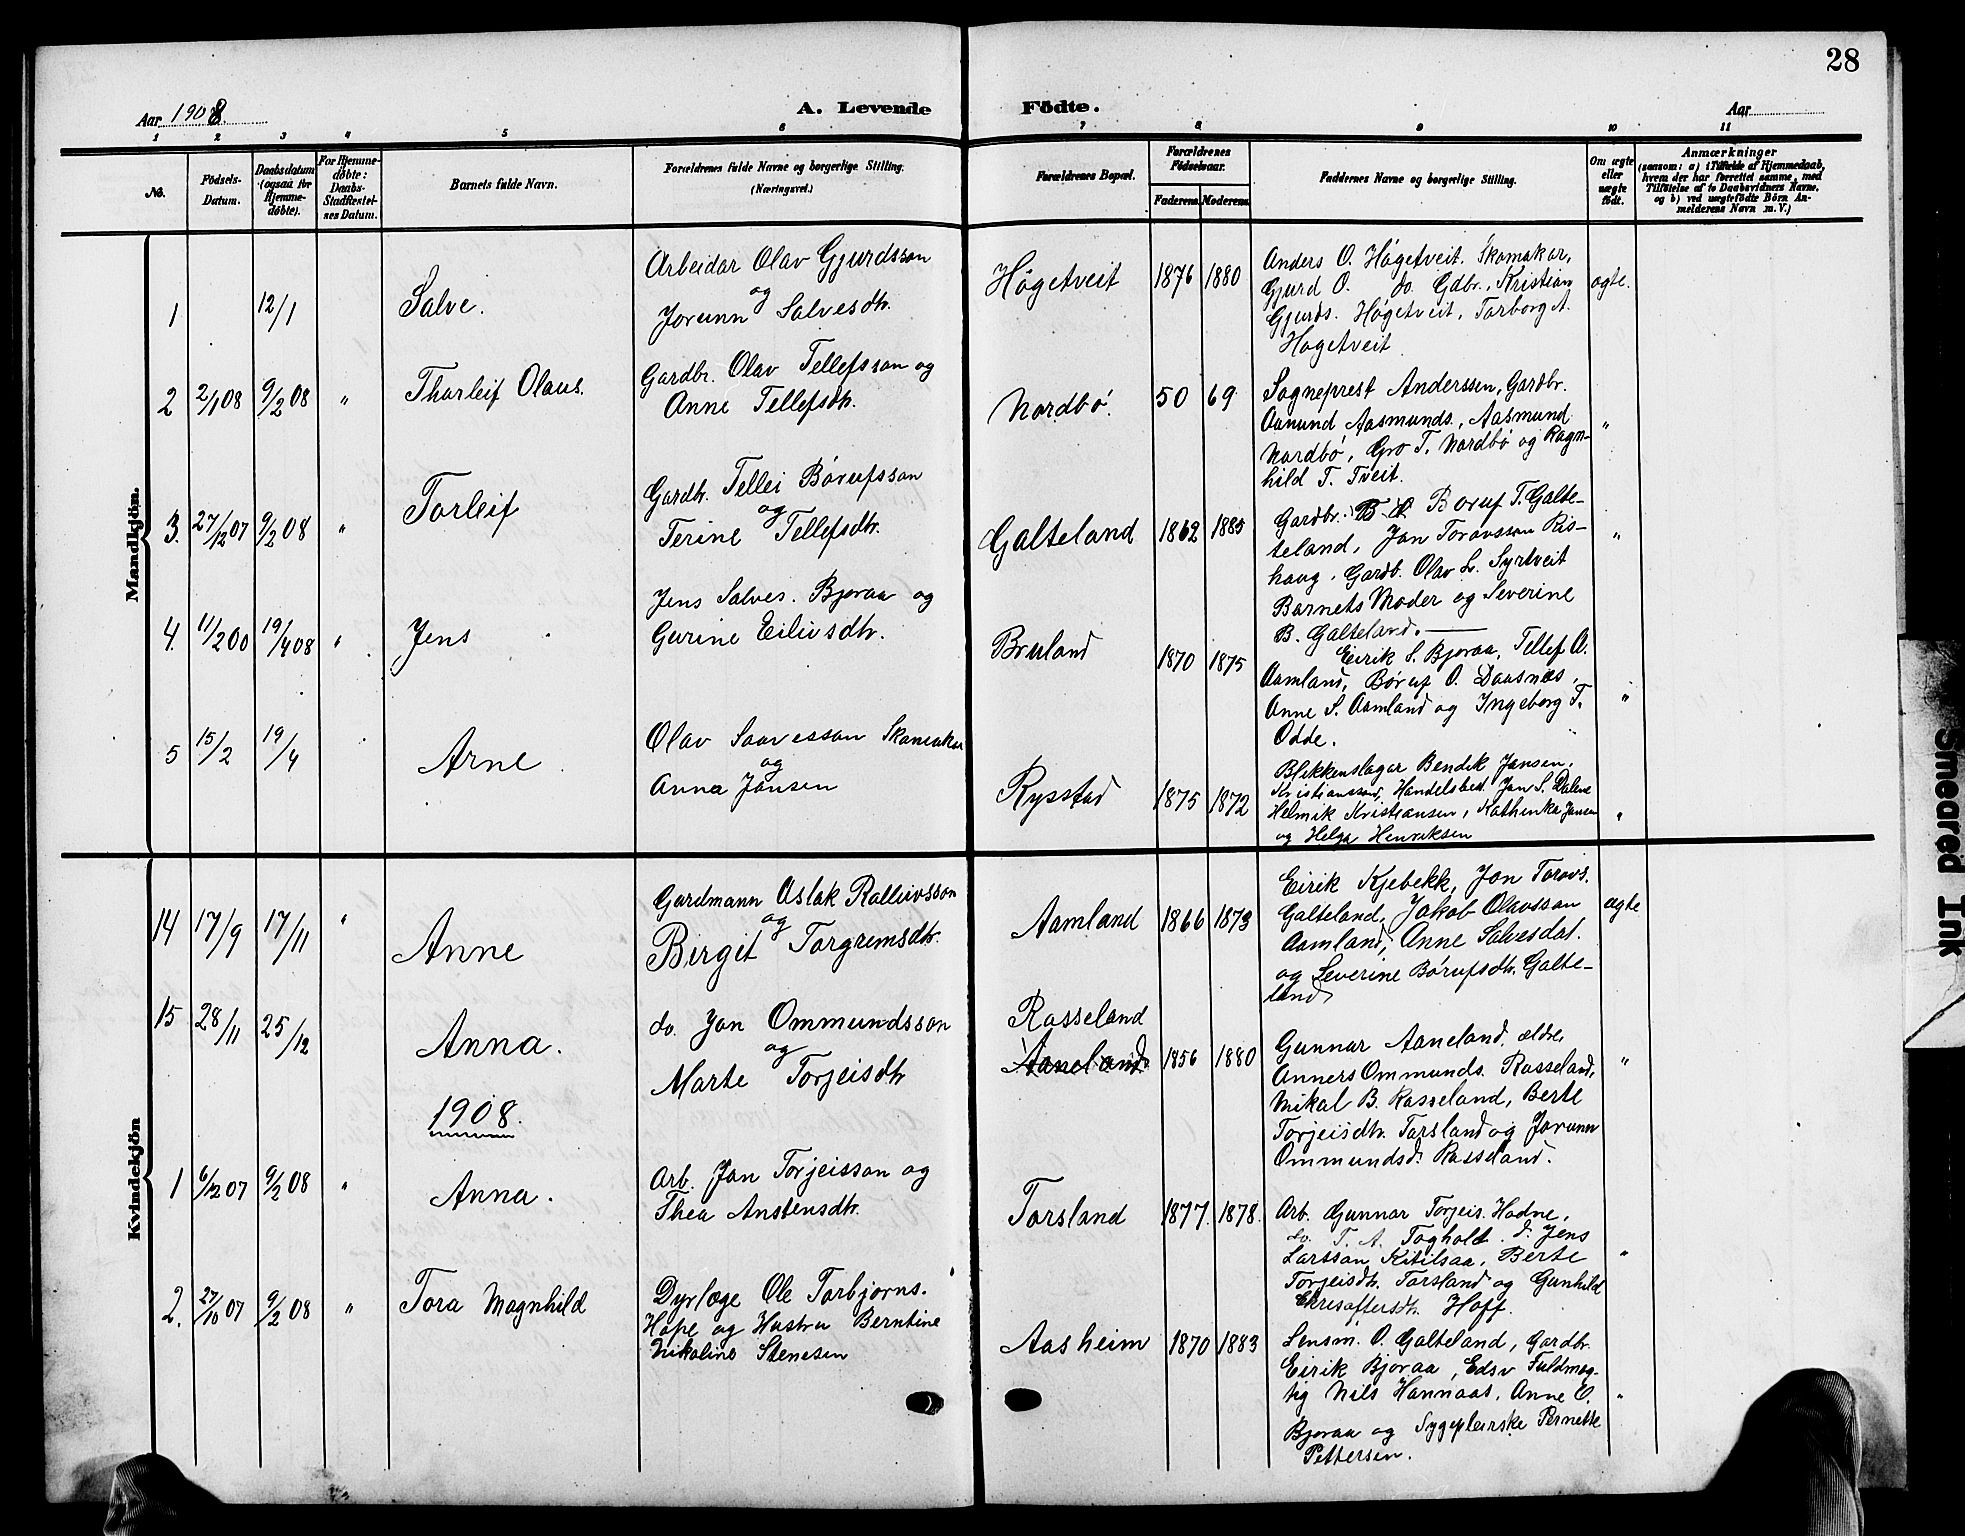 28
Aar 1908.
A. Levende Födte.
Aar
1 2 3 4 5 6 7 8 9 10 11
No.
Födsels-Datum.
Daabsdatum (ogsaa for Hjemme-døbte).
For Hjemme-døbte: Daabs-Stadfæstel-ses Datum.
Barnets fulde Navn.
Forældrenes fulde Navne og borgerlige Stilling. (Næringsvei.)
Forældrenes Bopæl.
Forældrenes Födselsaar.
Faderens. Moderens.
Faddernes Navne og borgerlige Stilling.
Om ægte eller uægte født.
Anmærkninger
(saasom: a) i Tilfælde af Hjemmedaab, hvem der har forrettet samme, med Tilföielse af to Daabsvidners Navne, og b) ved uægtefödte Börn An-melderens Navn m. V.)
Mandkjön.
1 12/1 Salve.
Arbeidar Olav Gjurdsson
og
Jorunn Salvesdtr.
Høgetveit 1876 1880
Anders O. Høgetveit. Skomakar,
Gjurd O. do. Gdbr., Kristian
Gjurds. Høgetveit, Torborg A.
Høgetveit
ægte.
2 2/1 08 9/2 08 " Thorleif Olaus.
Gardbr. Olav Tellefsson og
Anne Tellefsdtr.
Nordbø. 50 69
Sogneprest Anderssen, Gardbr.
Aanund Aasmunds., Aasmund
Nordbø, Gro T. Nordbø og Ragn-
hild T. Tveit.
"
3. 27/12 07 9/2 08 " Torleif
Gardbr. Tellei Børufsson
og
Terine Tellefsdtr.
Galteland 1862 1885
Gardbr. Boruf T. Galte-
teland, Jon Toravsson Ris-
haug, Gardb. Olav L. Syrtveit
Barnets Moder og Severine
B. Galteland.
"
4. 11/2 00 19/4 08 " Jens
Jens Salves. Bjoraa og
Gurine Eilivsdtr.
Bruland 1870 1875
Eirik S. Bjoraa, Tellef A.
Aamland, Børuf O. Daasnes,
Anne S. Aamland og Ingeborg T.
Odde.
"
5 15/2 19/4 Arne
Olav Saavesson Skomakar
og
Anna Jansen
Rysstad 1875 1872
Blikkenslagar Bendik Jansen,
Kristianssand, Handelsbest. Jon S. Dalene
Helmik Kristiansen, Kathinka Jansen
og Helga Henriksen
"
Kvindekjön
14 17/9 17/11 " Anne
Gardmann Aslak Rolleivsson
og
Birgit Torgrimsdtr.
Aamland 1866 1873
Eirik Kjebekk, Jon Toravs.
Galteland, Jakob Olavsson
Aamland, Anne Salvesdat.
og Severine Børufsdtr. Galte-
land
ægte
15 28/11 25/12 Anna.
do. Jon Ommundsson
og
Marte Torjeisdtr
Rosseland
Aaneland 1856 1880
Gunnar Aaneland, ældre,
Anners Ommunds. Rosseland,
Mikal B. Rosseland, Berte
Torjeisdtr. Torsland og Jorunn
Ommundsd. Rosseland.
"
1908.
1 6/12 07 9/2 08 " Anna.
Arb. Jon Torjeisson og
Thea Anstensdtr.
Torsland 1877. 1878.
Arb. Gunnar Torjeis. Hodne,
do. T. A. Fogholt. d. Jens
Larsson Kitilsaa, Berte
Torjeisdtr. Torsland og Gunhild
Hoff.
"
2. 27/10 07 9/2 08 " Tora Magnhild
Dyrlæge Ole Torbjørns.
Hope og Hustru Berntine
Nikoline Stenesen
Aasheim 1870 1883
Lensm. O. Galteland, Gardbr.
Eirik Bjoraa, Edsv. Fuldmæg-
tig Nils Hannaas, Anne E.
Bjoraa og Sygepleierske Pernette
Pettersen.
"
Smeared Ink